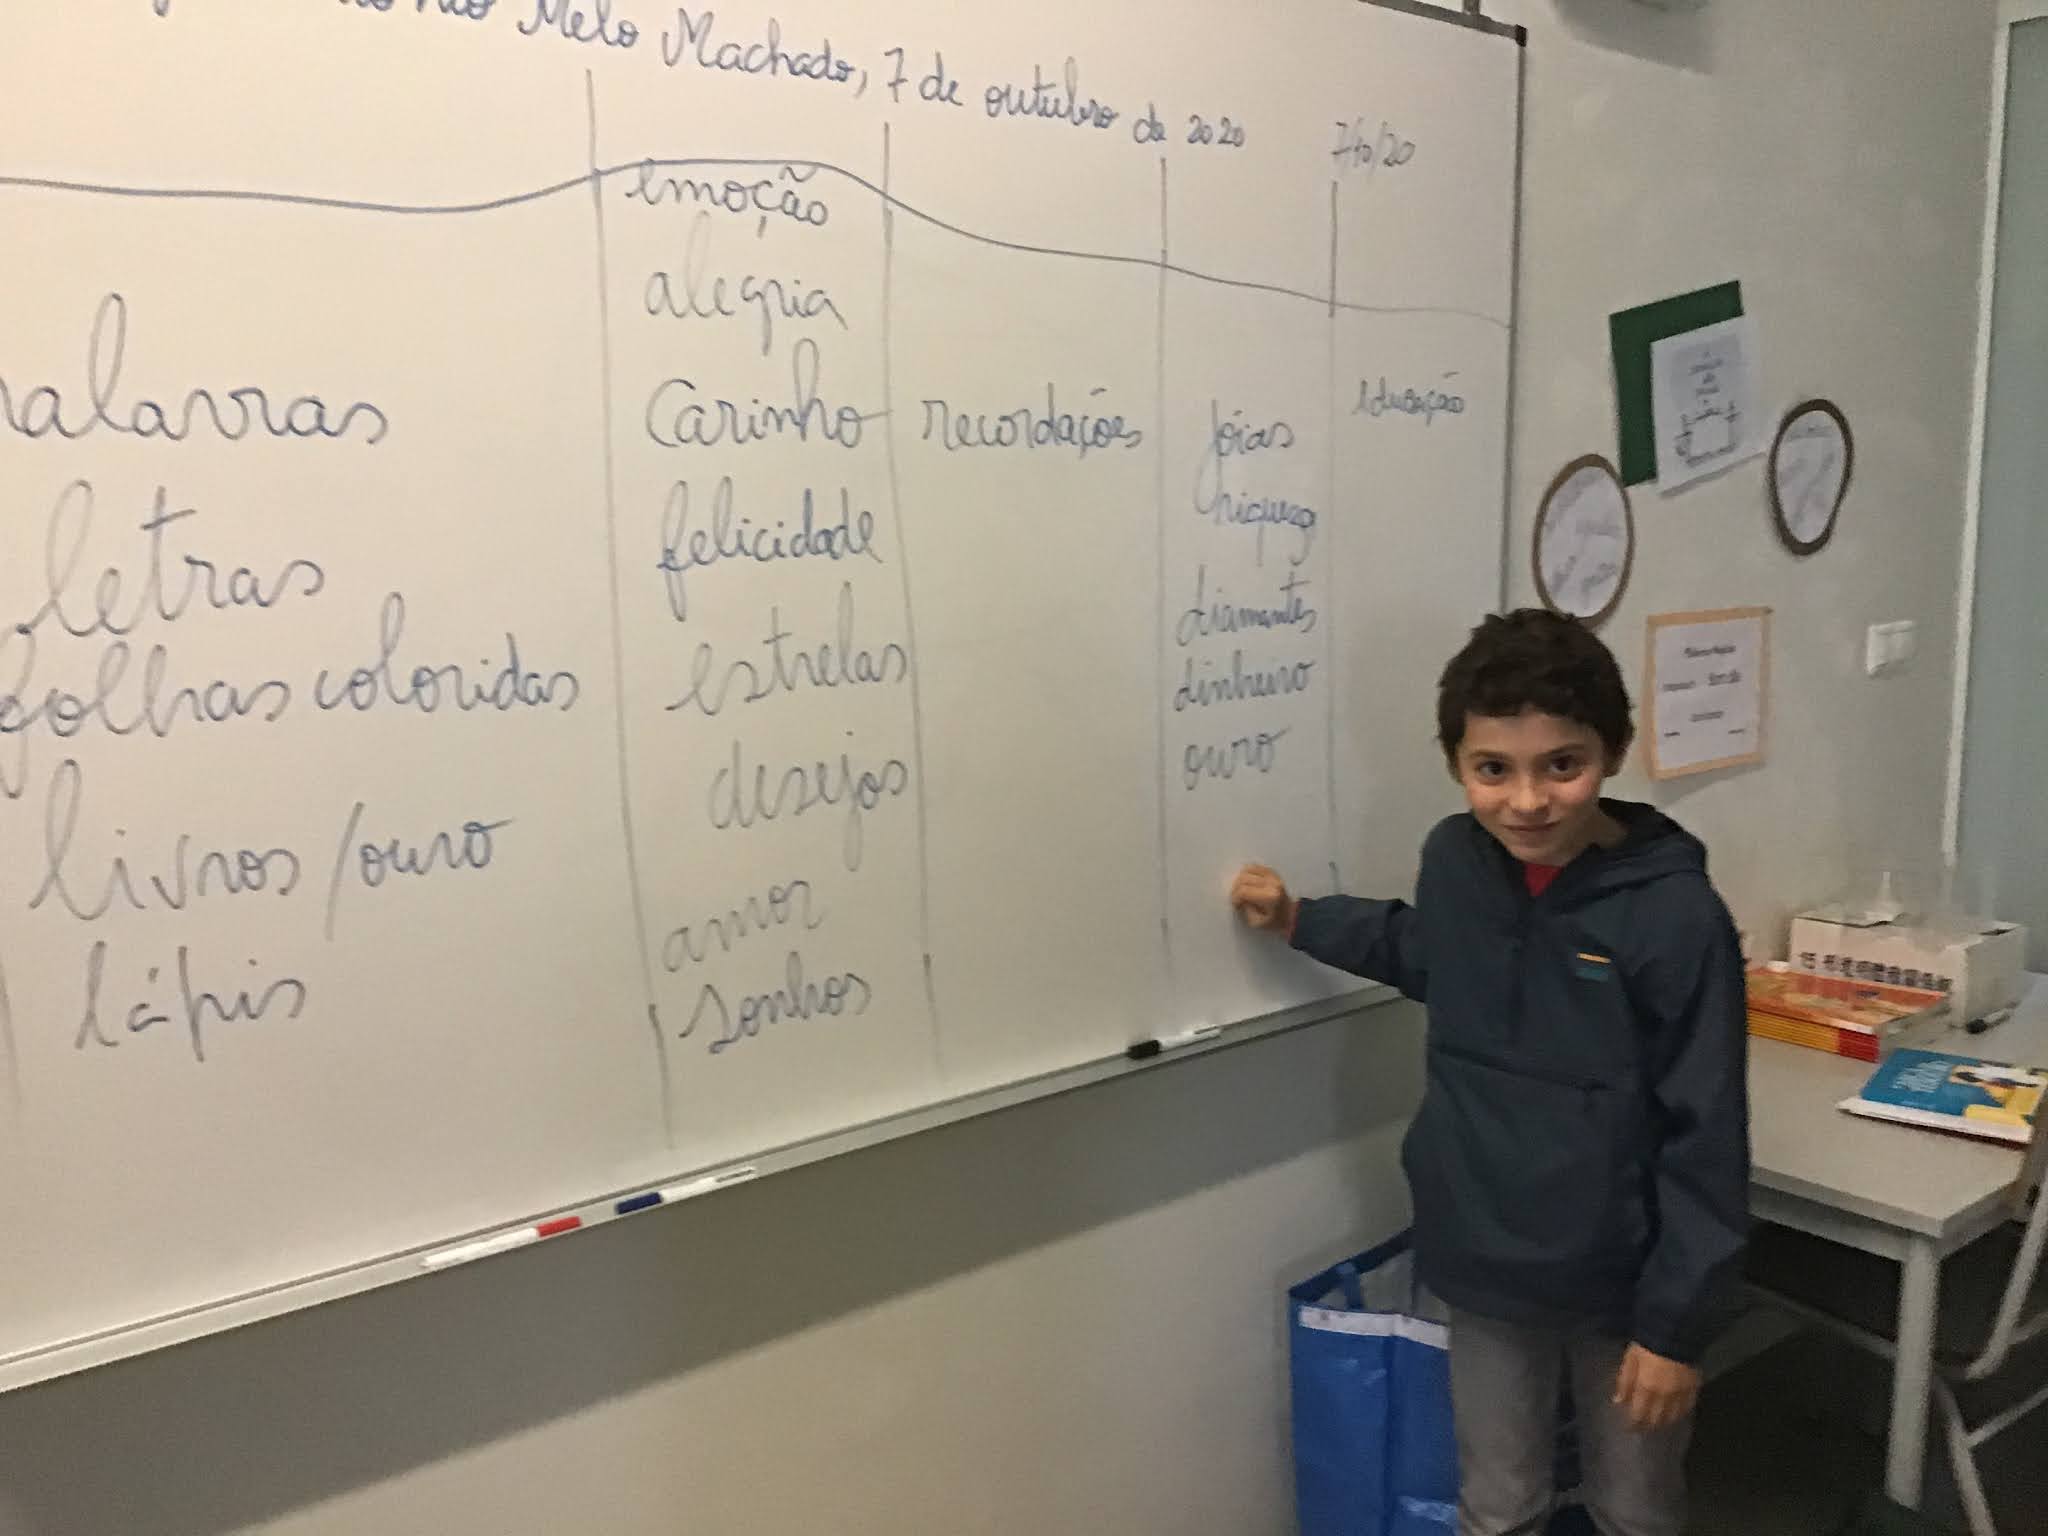 Melo Machado, 7 de outubro de 2020
7/10/20
palavras
letras
folhas coloridas
livros / ouro
lápis
emoção
alegria
Carinho
felicidade
estrelas
desejos
amor
sonhos
recordações
jóias
riqueza
diamantes
dinheiro
ouro
educação